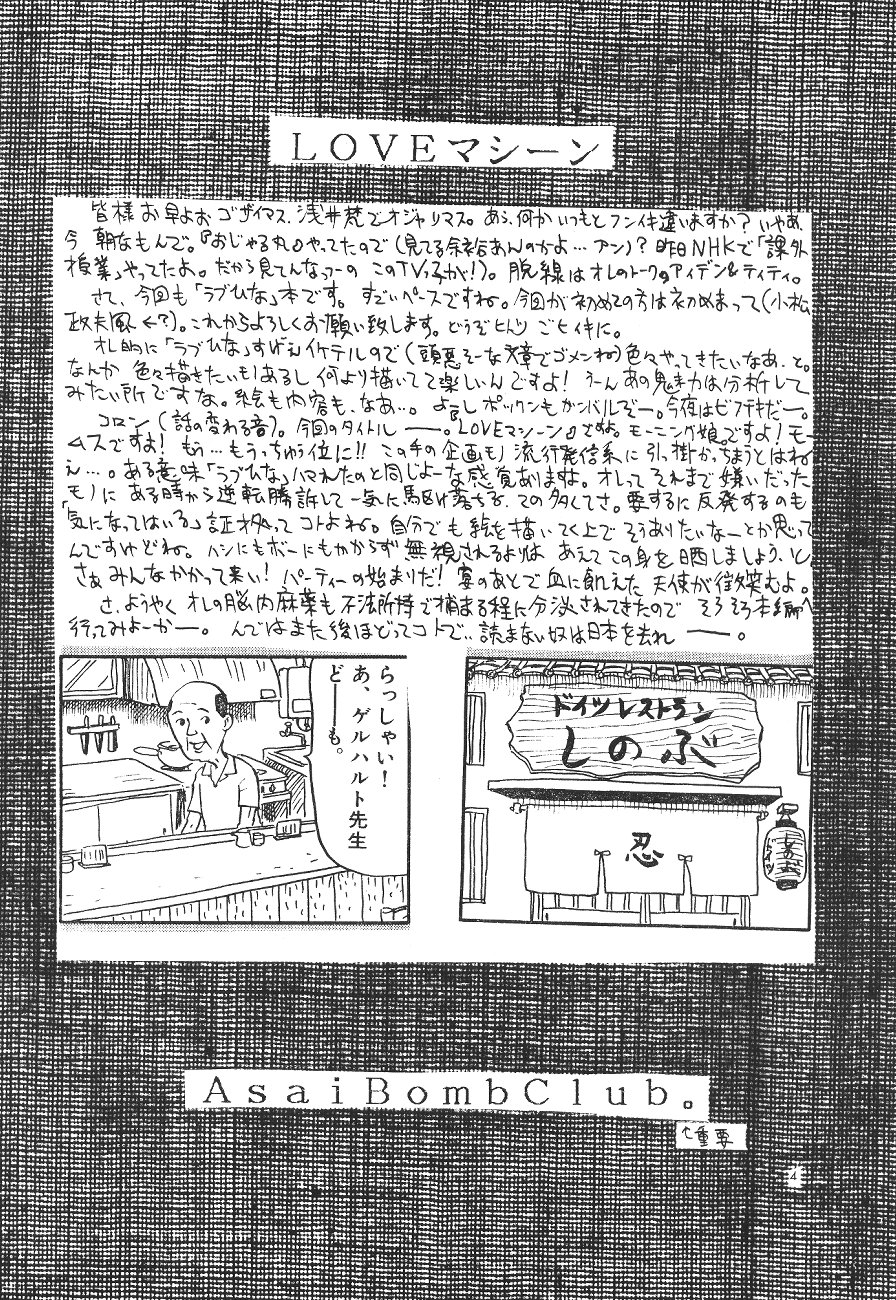 LOVEマシーン
皆様お早よおゴザイマス、浅井梵でオジャリマス。あら、何かいつもとフンイキ違いますか？いやあ、
今朝なもんで。『おじゃる丸』やってたので(見てる余裕あんのかよ…アン)？昨日NHKで「課外
授業」やってたよ。だから見てんなっつーの このTVっ子が！)。脱線はオレのトークのアイデン&ティティ。
さて、今回も「ラブひな」本です。すごいペースですね。今回が初めての方は初めまして(小松
政夫風←？)。これからよろしくお願い致します。どうぞヒトツ ごヒイキに。
オレ的に「ラブひな」すげえイケテルので(頭悪そーな文章でゴメンね)色々やってきたいなあ、と。
なんか 色々描きたいモノあるし 何より描いてて楽しいんですよ！うーん あの魅力は分析して
みたい所ですな。絵も内容も、なあ…。よーし ボックンもガンバルぞー。今夜はビフテキだー。
コロン(話の変わる音)。今回のタイトル ―。『LOVEマシーン』ですよ。モーニング娘。ですよ！モー
ムスですよ！もう…もうっちゅう位に!!この手の企画モノ流行発信系に引っ掛かっちまうとはね
え…。ある意味「ラブひな」ハマれたのと同じよーな感覚ありますよ。オレってそれまで嫌いだった
モノに ある時から逆転勝訴して一気に駆け落ちる、ての多くてさ。要するに反発するのも
「気になってはいる」証拠ってコトよね。自分でも絵を描いてく上でそうありたいなーとか思って
んですけどね。ハシにもボーにもかからず無視されるよりは あえてこの身を晒しましょう、と。
さぁみんなかかって来い！パーティーの始まりだ！宴のあとで血に飢えた 天使が微笑むよ。
さ、ようやく オレの脳内麻薬も不法所持で捕まる程に分泌されてきたので そろそろ本編へ
行ってみよーかー。んではまた後ほどってコトで‥読まない奴は日本を去れ ―。
ドイツレストラン
しのぶ
忍
らっしゃい！
あ、ゲルハルト先生
ど――も。
AsaiBombClub。
↑重要
4